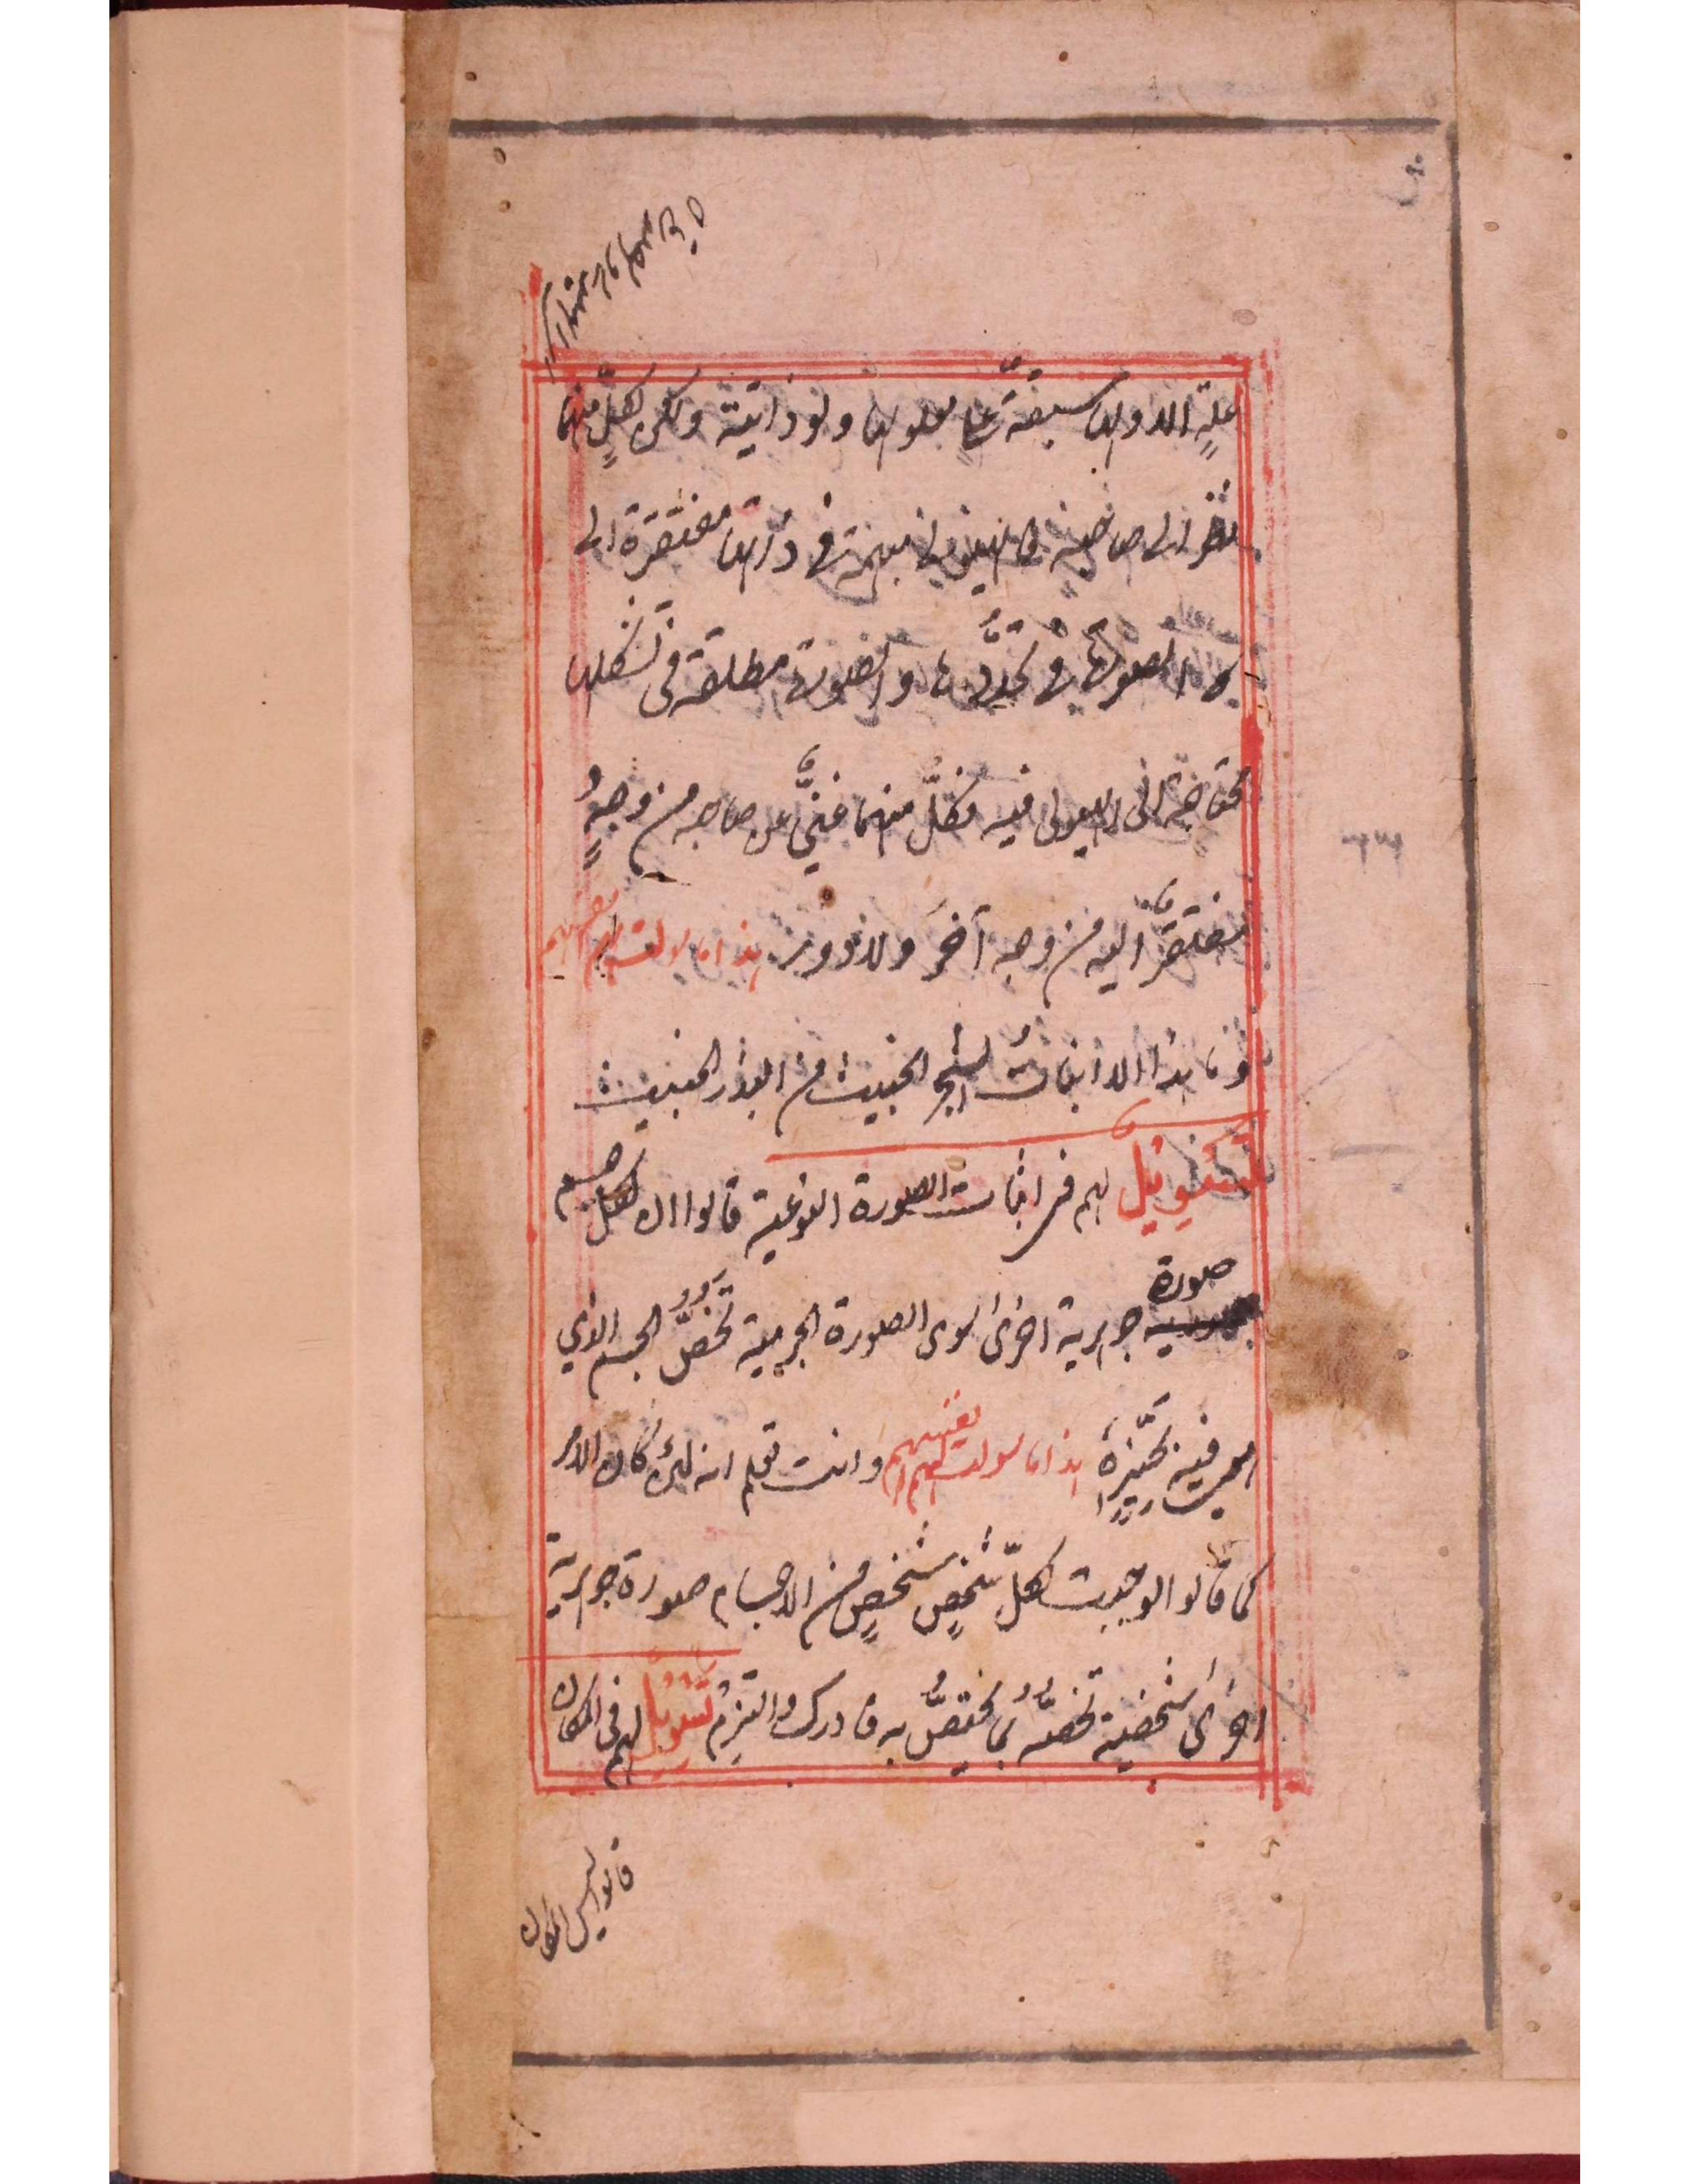 علةٍ الا ولها سبقة على معلولها ولو ذاتية ولكن لكلٍّ منهما
الى صاحبه فالهيولى مبهمة فى ذاتها مفتقرة الى
الصورة فى والصورة مطلقة فى تشكلها
محتاجة الى الهيولى فيه فكلٌّ منهما غنيٌّ عن صاحبه من وجهٍ
مفتقرٌ اليه من وجه آخر ولا دور هذا ما سولت لهم انفسهم
وما هذا الا انبات الشجر الخبيث من البذر الخبيث
تسويل لهم فى اثبات الصورة النوعية قالوا ان لكل جسم
صورة جوهرية اخرى سوى الصورة الجرمية تخصّ الجسم الذي
هى فيه بحيّزه هذا ما سولت لهم انفسهم وانت تعلم انه لئن كان الامر
كما قالوا لوجبت لكلّ شخصٍ شخصٍ من الاجسام صورة جوهرية
اخرى شخصية تخصّه بما يختصّ به فادرك والتزم تسويل لهم فى المكان
قالوا ليس المكان